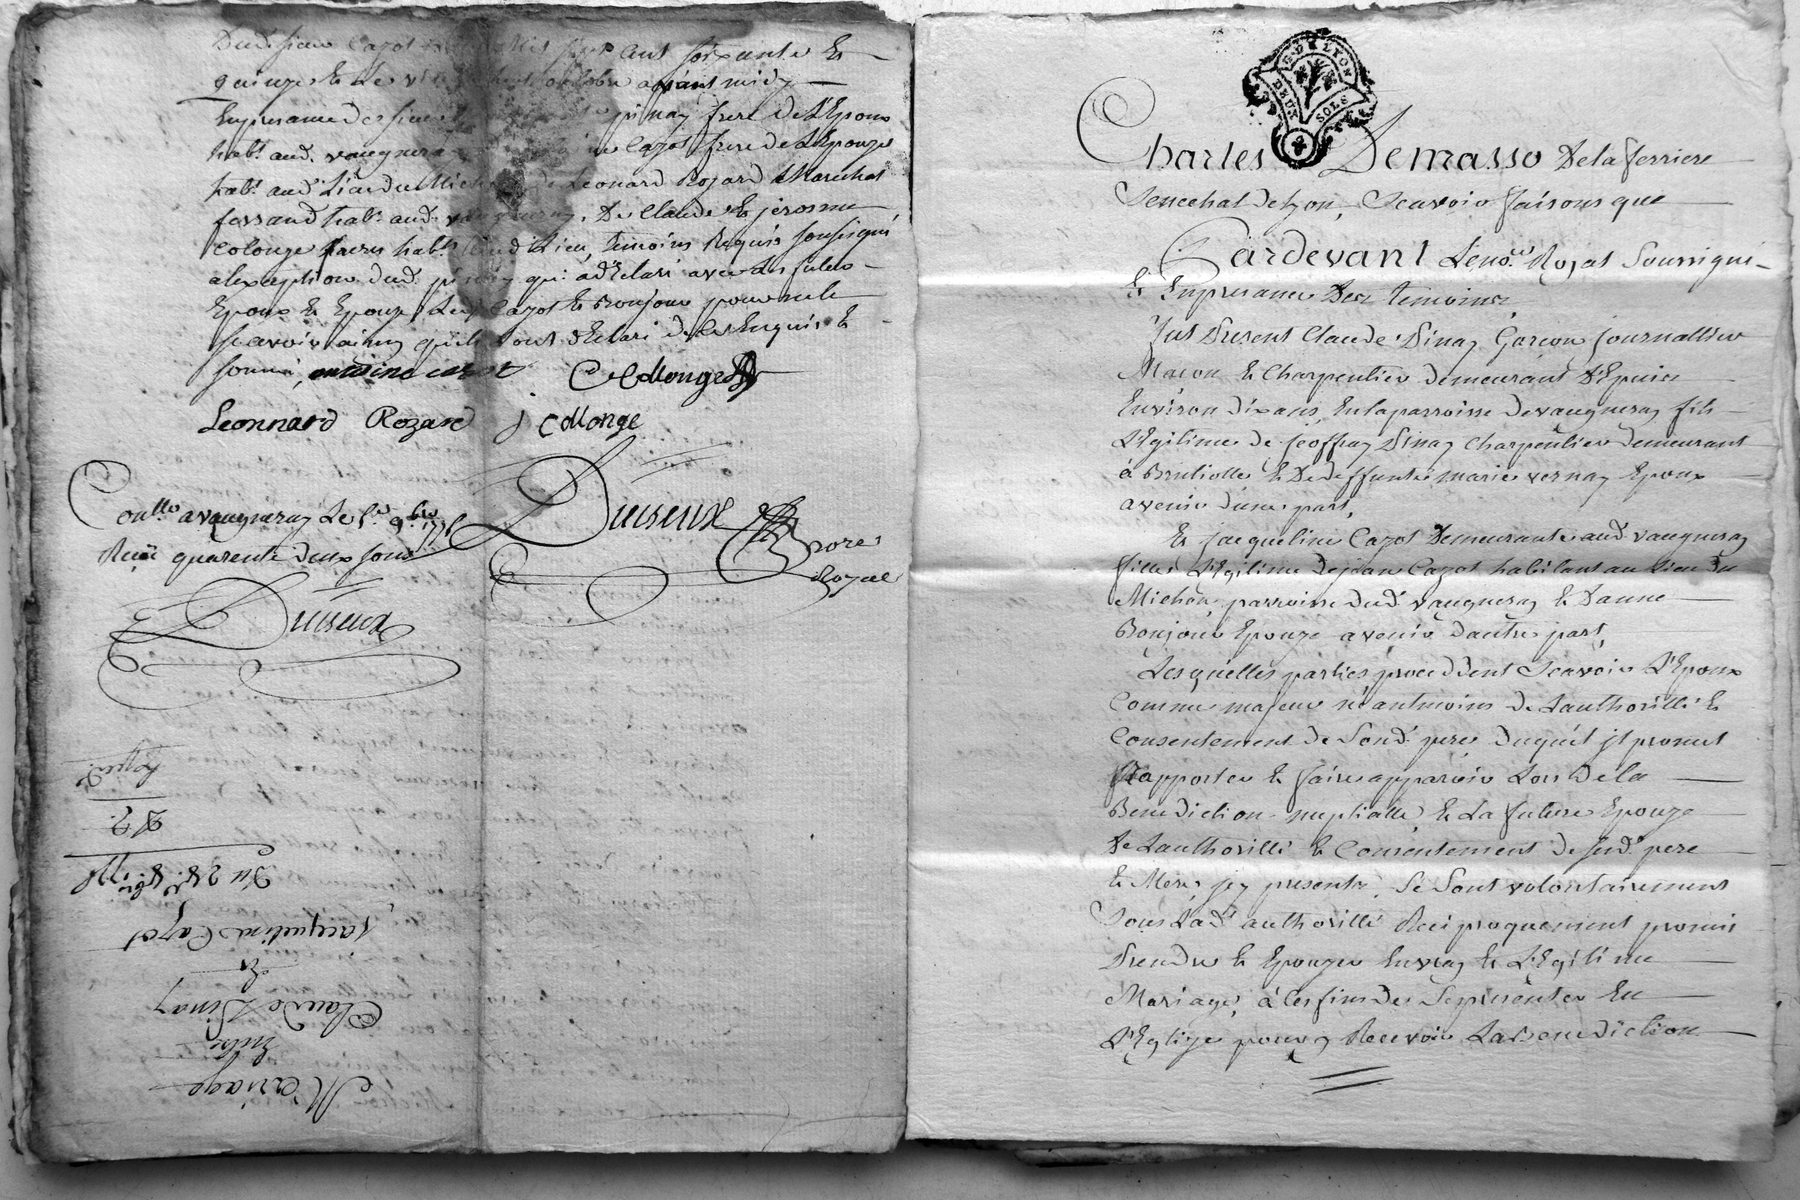 Dudt sieur Cazot mil sept cent soixante et
quinze et le vingt huit octobre apprés midy
En presance des sieurs pinay frere de L'Epoux
habt. aud. vaugneray Cazot frere de L'Epouze
habt. aud. Lieu du Michon de Leonard Rozard Marechal
ferrand habt. aud. vaugneray, De Claude Et jerosme
Colonge freres habts. aud. Lieu, temoins Requis soussigné
alexeption dud. pinay qui a dEclaré avec les futurs
Epoux Et Epouze, Led. Cazot Et Bonjour pour ne le
scavoir ainsy qu'ils ont dEclaré de ce Enquis Et
sommé, antoine cazot C Collonge
Leonnard Rozard j collonge
Conllé a vaugneray Le 5e. 9bre 1775
Reçu quarente deux sous
Duiseux
nore.
Royal
Duiseux
Mariage
Entre
Claude Pinay
Et
Jacqueline Cazot
Du 28e. 8bre. 1775
Exped.
DE LYON
DEUX SOLS
Charles Demasso De la ferriere
Senechal de Lyon, Scavoir faisons que
Pardevant Le nore. Royal Soussigné
Et En presance Des temoins
fut Present Claude Pinay Garçon journallier
Macon Et Charpentier demeurant dEpuis
Environ dix ans, En la parroisse de vaugneray fils
L'Egitime de jeoffray Pinay Charpentier demeurant
à Brulliolle Et De deffunte marie vernay Epoux
avenir d'une part,
Et jacqueline Cazot Demeurante aud. vaugneray
fille L'Egitime de jean Cazot habitant au Lieu du
Michon, parroisse dud. vaugneray Et D'anne
Bonjour Epouze avenir d'autre part,
Les quelles parties proceddent Scavoir L'Epoux
Comme majeur néantmoins de Lauthoritté Et
Consentement de Sond. pere duquel jl promet
Rapporter Et faire apparoir Lors de la
Benediction nuptialle, Et La future Epouze
De Lauthoritté Et Consentement de sesd. pere
Et Mere jcy presents, Se Sont volontairement
Sous Lad. authoritté Reciproquement promis
Prendre Et Epouzer En vray Et L'Egitime
Mariage, à Ces fins de Se presenter En
L'Eglize pour y Recevoir La Benediction